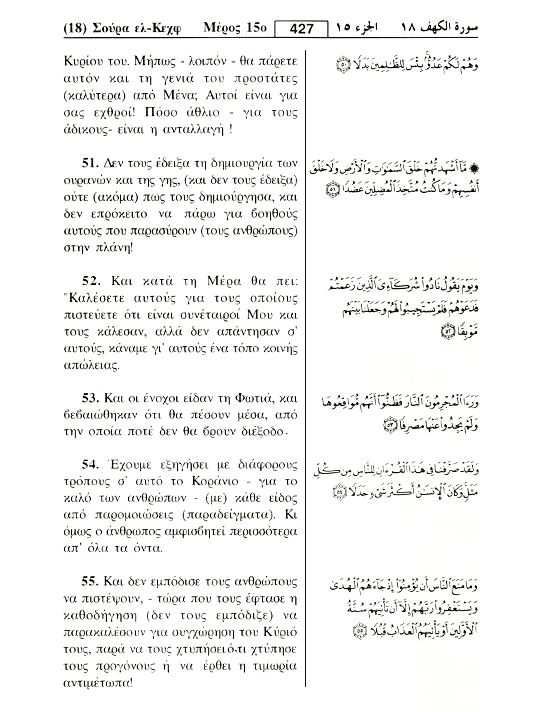 (18) Σούρα ελ-Κεχφ Μέρος 15ο 427 الجزء ١٥ سورة الكهف ١٨
Κυρίου του. Μήπως - λοιπόν - θα πάρετε
αυτόν και τη γενιά του προστάτες
(καλύτερα) από Μένα; Αυτοί είναι για
σας εχθροί! Πόσο άθλιο - για τους
άδικους- είναι η ανταλλαγή !
وَهُمْ لَكُمْ عَدُوٌّۢ بِئْسَ لِلظَّٰلِمِينَ بَدَلًا ٥٠
51. Δεν τους έδειξα τη δημιουργία των
ουρανών και της γης, (και δεν τους έδειξα)
ούτε (ακόμα) πως τους δημιούργησα, και
δεν επρόκειτο να πάρω για βοηθούς
αυτούς που παρασύρουν (τους ανθρώπους)
στην πλάνη!
۞ مَّآ أَشْهَدتُّهُمْ خَلْقَ ٱلسَّمَٰوَٰتِ وَٱلْأَرْضِ وَلَا خَلْقَ
أَنفُسِهِمْ وَمَا كُنتُ مُتَّخِذَ ٱلْمُضِلِّينَ عَضُدًا ٥١
52. Και κατά τη Μέρα θα πει:
"Καλέσετε αυτούς για τους οποίους
πιστεύετε ότι είναι συνέταιροί Μου και
τους κάλεσαν, αλλά δεν απάντησαν σ'
αυτούς, κάναμε γι' αυτούς ένα τόπο κοινής
απώλειας.
وَيَوْمَ يَقُولُ نَادُوا۟ شُرَكَآءِىَ ٱلَّذِينَ زَعَمْتُمْ
فَدَعَوْهُمْ فَلَمْ يَسْتَجِيبُوا۟ لَهُمْ وَجَعَلْنَا بَيْنَهُم
مَّوْبِقًا ٥٢
53. Και οι ένοχοι είδαν τη Φωτιά, και
βεβαιώθηκαν ότι θα πέσουν μέσα, από
την οποία ποτέ δεν θα βρουν διέξοδο.
وَرَءَا ٱلْمُجْرِمُونَ ٱلنَّارَ فَظَنُّوٓا۟ أَنَّهُم مُّوَاقِعُوهَا
وَلَمْ يَجِدُوا۟ عَنْهَا مَصْرِفًا ٥٣
54. Έχουμε εξηγήσει με διάφορους
τρόπους σ' αυτό το Κοράνιο - για το
καλό των ανθρώπων - (με) κάθε είδος
από παρομοιώσεις (παραδείγματα). Κι
όμως ο άνθρωπος αμφισβητεί περισσότερα
απ' όλα τα όντα.
وَلَقَدْ صَرَّفْنَا فِى هَٰذَا ٱلْقُرْءَانِ لِلنَّاسِ مِن كُلِّ
مَثَلٍ وَكَانَ ٱلْإِنسَٰنُ أَكْثَرَ شَىْءٍ جَدَلًا ٥٤
55. Και δεν εμπόδισε τους ανθρώπους
να πιστέψουν, - τώρα που τους έφτασε η
καθοδήγηση (δεν τους εμπόδιζε) να
παρακαλέσουν για συγχώρηση του Κύριό
τους, παρά να τους χτυπήσει ό,τι χτύπησε
τους προγόνους ή να έρθει η τιμωρία
αντιμέτωπα!
وَمَا مَنَعَ ٱلنَّاسَ أَن يُؤْمِنُوٓا۟ إِذْ جَآءَهُمُ ٱلْهُدَىٰ
وَيَسْتَغْفِرُوا۟ رَبَّهُمْ إِلَّآ أَن تَأْتِيَهُمْ سُنَّةُ
ٱلْأَوَّلِينَ أَوْ يَأْتِيَهُمُ ٱلْعَذَابُ قُبُلًا ٥٥